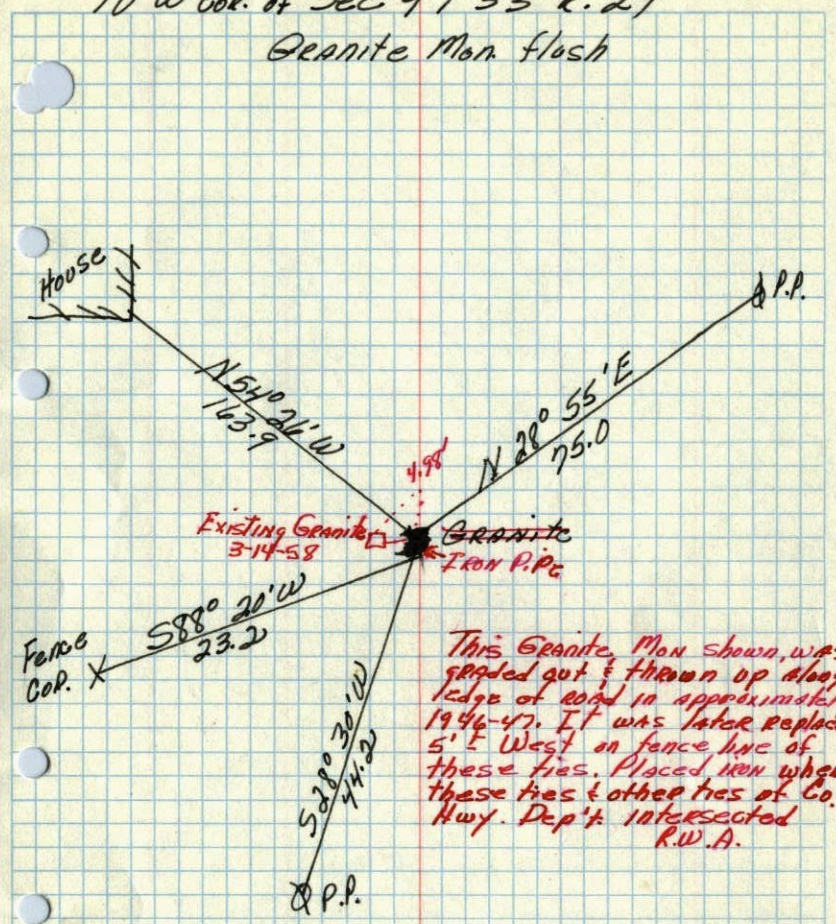 W COR. of Sec 4 T 33 R. 21
GRANITE Mon. flush
House
P.P.
N54° 26'W
163.9
N 28° 55'E
75.0
4.98'
Existing Granite
3-14-58
GRANITE
IRON PiPe
S88° 20'W
23.2
Fence
COR.
S28° 30'W
44.2
P.P.
This GRANITE Mon shown, was
graded out & thrown up along
edge of road in approximate
1946-47. It was later replac
5' ± West on fence line of
these ties. Placed iron whe
these ties & other ties of Co.
Hwy. Dep't. intersected
R.W.A.